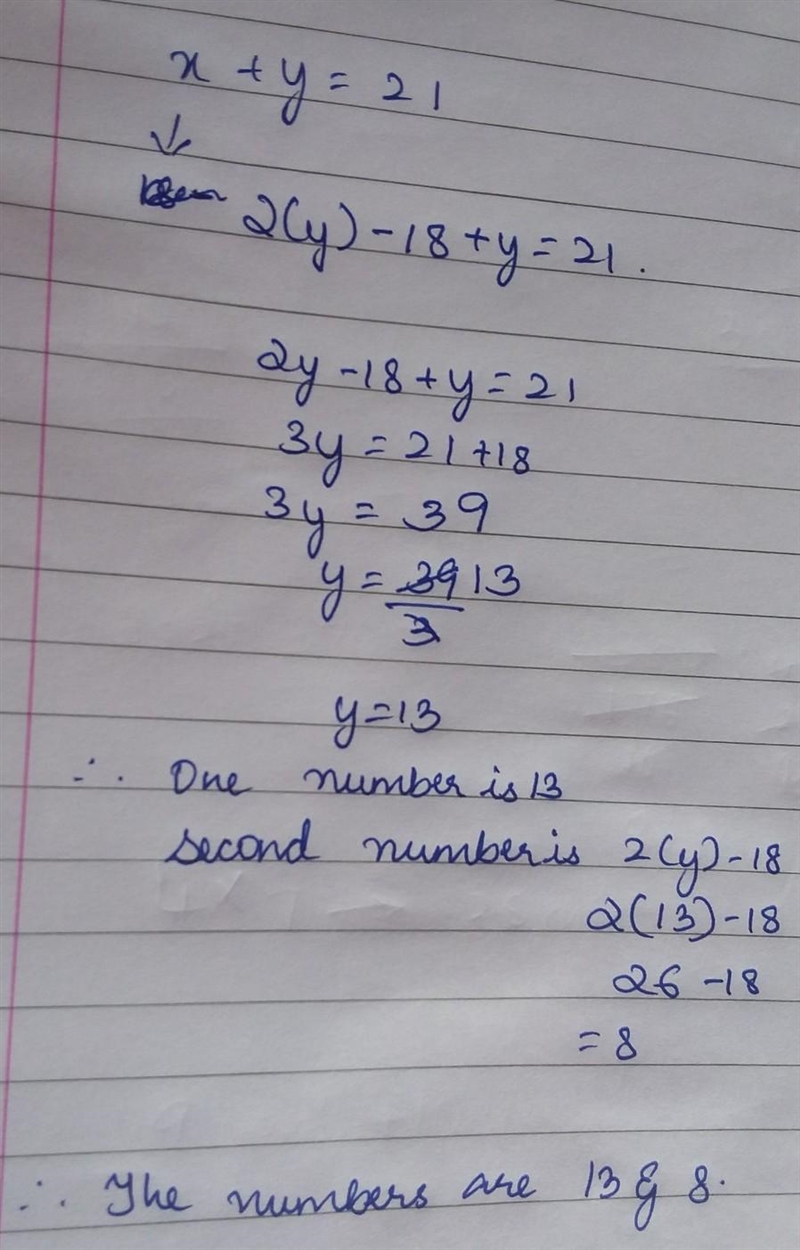 x + y = 21
↓
2(y) - 18 + y = 21.
2y - 18 + y = 21
3y = 21 + 18
3y = 39
y = 39 13
3
y = 13
∴ One number is 13
second number is 2(y) - 18
2(13) - 18
26 - 18
= 8
∴ The numbers are 13 & 8.